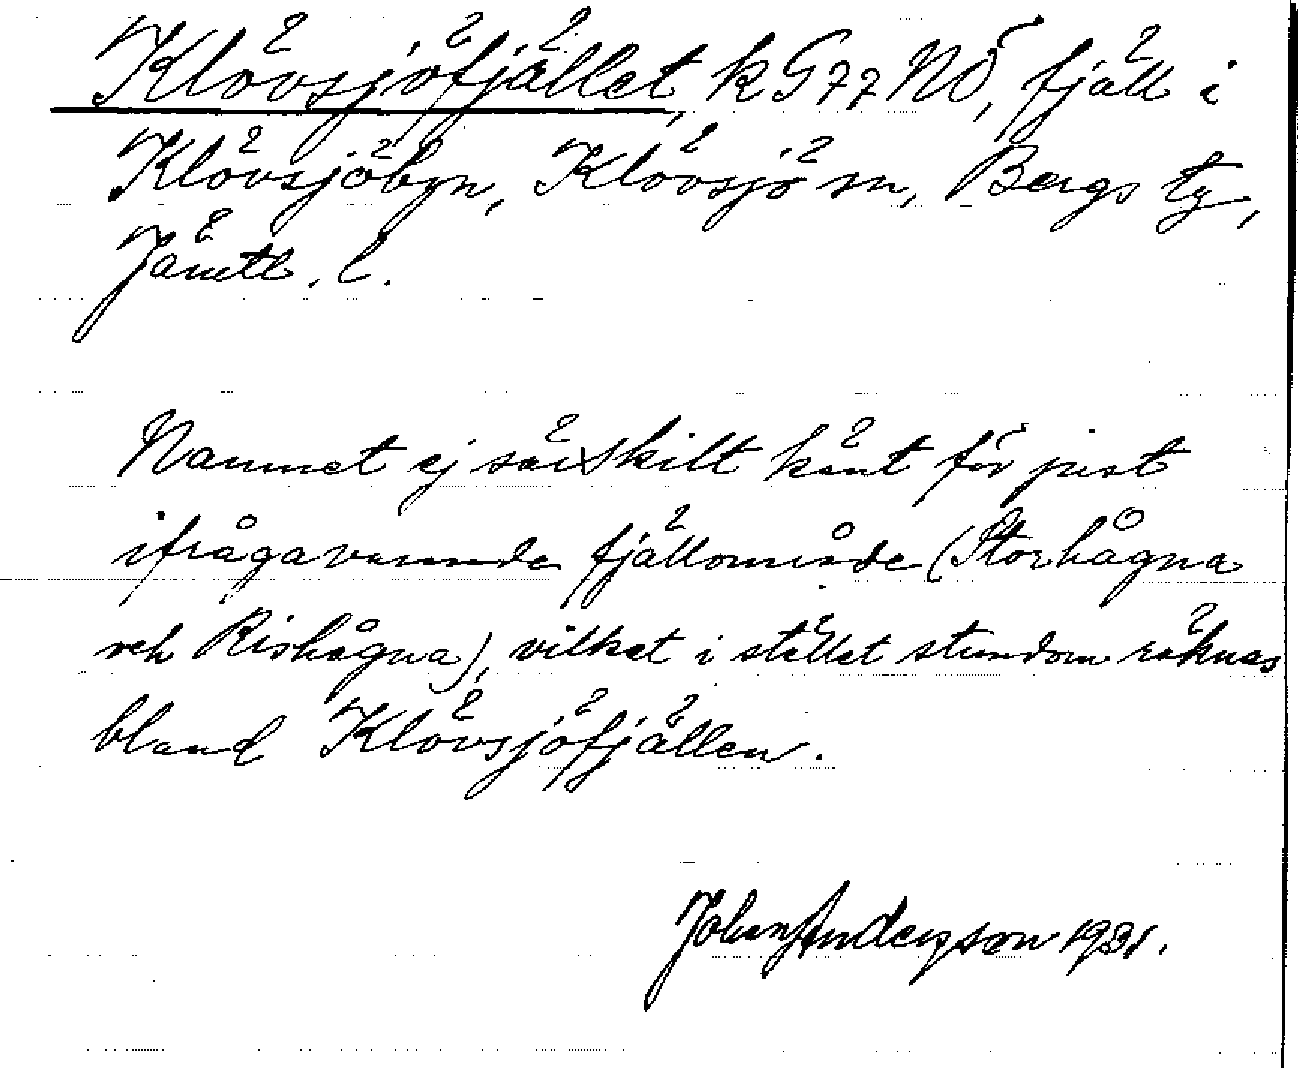 Klövsjöfjället, k G 77 NÖ, fjäll i
Klövsjöbyn, Klövsjö sn, Bergs tg,
Jämtl. l.
Namnet ej särskilt känt för just
ifrågavarande fjällområde (Storhågna
och Rishågna), vilket i stället stundom räknas
bland Klövsjöfjällen.
John Anderson 1931.